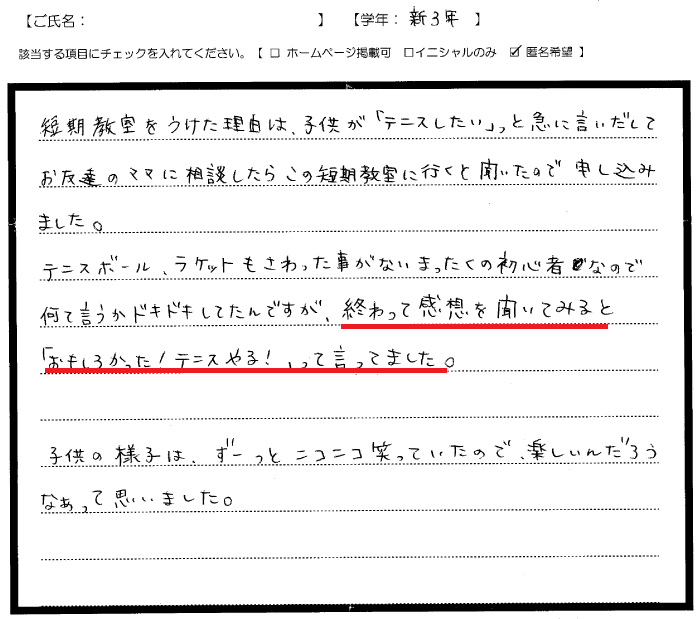 【ご氏名： 】 【学年： 新3年 】
該当する項目にチェックを入れてください。【 □ ホームページ掲載可 □イニシャルのみ ☑ 匿名希望 】
短期教室をうけた理由は、子供が「テニスしたい」っと急に言いだして
お友達のママに相談したらこの短期教室に行くと聞いたので申し込み
ました。
テニスボール、ラケットもさわった事がないまったくの初心者なので
何て言うかドキドキしてたんですが、終わって感想を聞いてみると
「おもしろかった！テニスやる！、って言ってました。
子供の様子は、ずーっとニコニコ笑っていたので、楽しいんだろう
なぁって思いました。